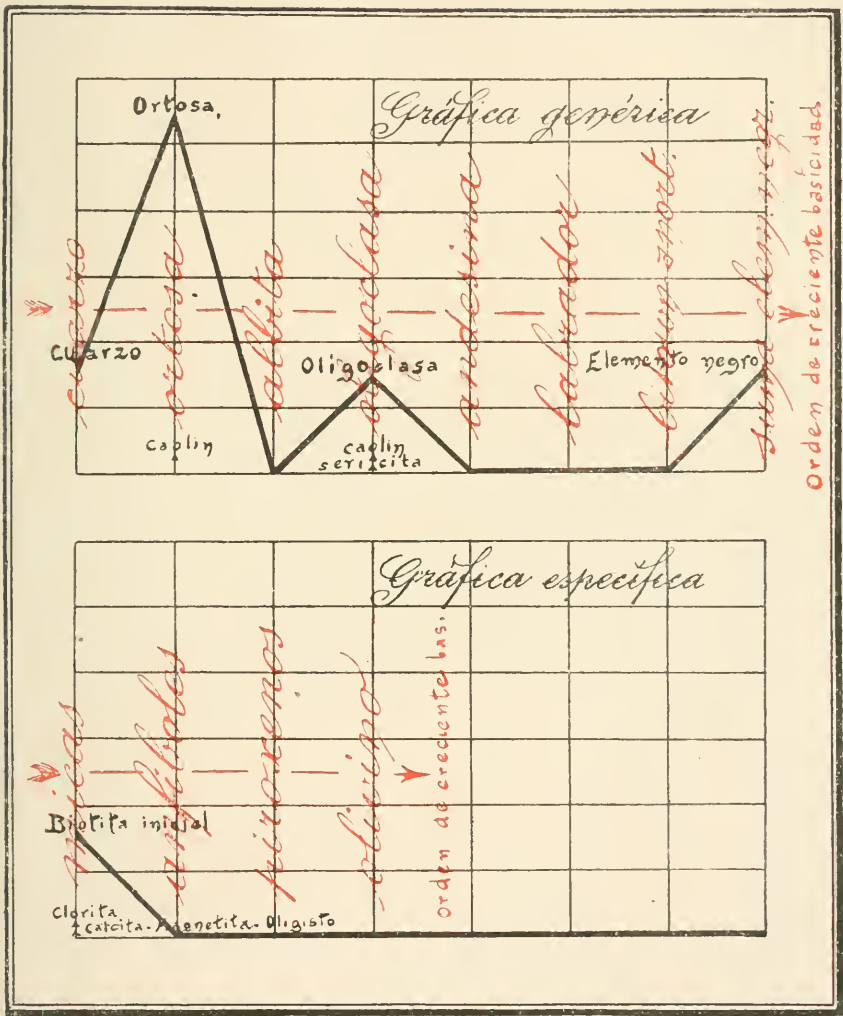 Gráfica genérica
Ortosa,
Cuarzo
Oligoclasa
Elemento negro
Caolin
caolin
sericita
cuarzo
ortosa
albita
oligoclasa
andesina
labrador
suma elem. negr.
Orden de creciente basicidad
Gráfica específica
Biotita inicial
Clorita
Calcita-Magnetita-Oligisto
micas
anfiboles
piroxenos
olivino
orden de creciente bas.